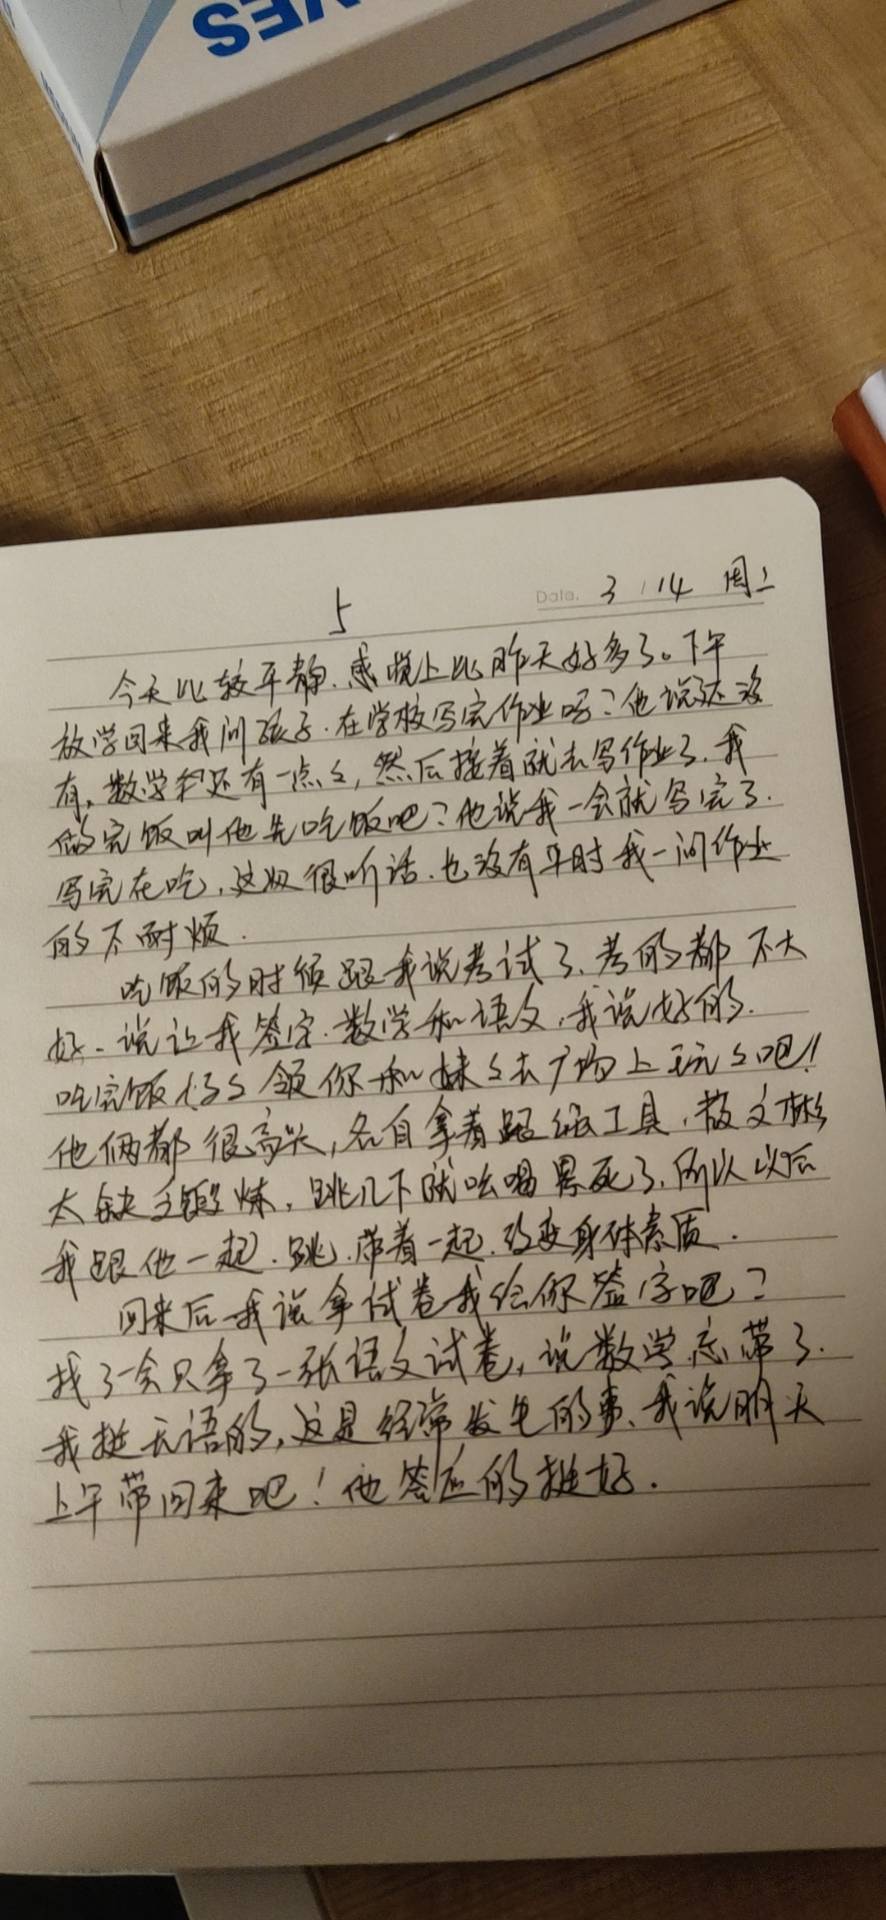 VES
5
Date. 3 / 14 周二
今天比较平静.感觉上比昨天好多了。下午
放学回来我问孩子.在学校写完作业吗?他说还没
有,数学还有一点点,然后接着就去写作业了.我
做完饭叫他先吃饭吧?他说我一会就写完了.
写完在吃,这次很听话.也没有平时我一问作业
的不耐烦.
吃饭的时候跟我说考试了.考的都不大
好.说让我签字.数学和语文,我说好的.
吃完饭领你和妹妹去广场上玩玩吧!!
他俩都很高兴,各自拿着跳绳工具.
太缺乏锻炼.跳几下就吆喝累死了.所以以后
我跟他一起.跳.带着一起.改变身体素质.
回来后我说拿试卷我给你签字吧?
找了一会只拿了一张语文试卷,说数学忘带了.
我挺无语的,这是经常发生的事、我说明天
上午带回来吧!他答应的挺好.